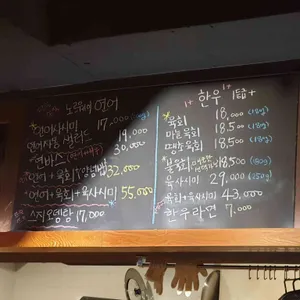 노르웨이 연어
연어사시미 17,000
연어사시미 샐러드 19,000
연바스 30,000
연어+육회+ 32,000
연어+육회+육사시미 55,000
스지오뎅탕 17,000
한우 1++
육회 18,000 (180g)
마늘육회 18,500 (180g)
땡초육회 18,500 (180g)
불육회 18,500 (180g)
육사시미 29,000 (150g)
육회+육사시미 43,000
한우라면 7,000